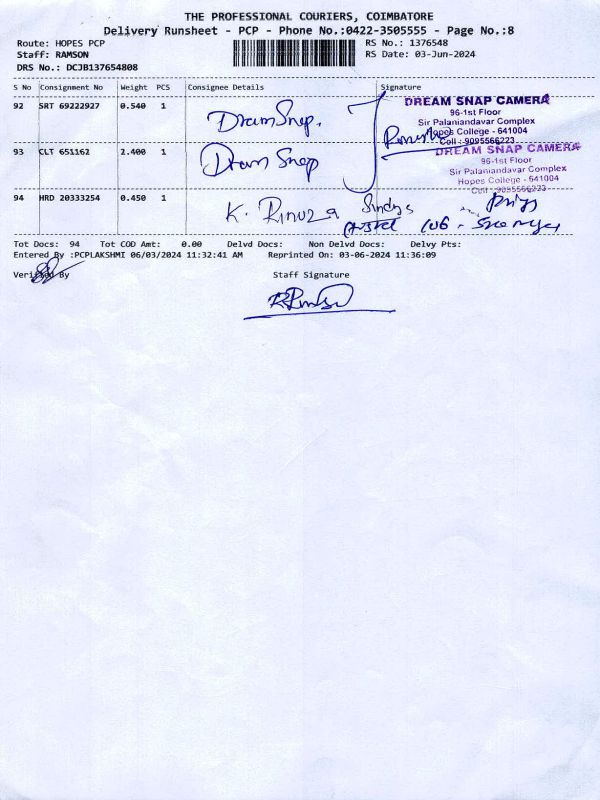 THE PROFESSIONAL COURIERS, COIMBATORE
Delivery Runsheet - PCP - Phone No.:0422-3505555 - Page No.:8
Route: HOPES PCP RS No.: 1376548
Staff: RAMSON RS Date: 03-Jun-2024
DRS No.: DCJB137654808
S No Consignment No Weight PCS Consignee Details Signature
92 SRT 69222927 0.540 1 Dream Snap.
DREAM SNAP CAMERA
96-1st Floor
Sir Palaniandavar Complex
Hopes College - 641004
Cell : 9095566223
93 CLT 651162 2.400 1 Dream Snap
DREAM SNAP CAMERA
96-1st Floor
Sir Palaniandavar Complex
Hopes College - 641004
Cell : 9095566223
94 HRD 20333254 0.450 1 K. Rinuza
Tot Docs: 94 Tot COD Amt: 0.00 Delvd Docs: Non Delvd Docs: Delvy Pts:
Entered By :PCPLAKSHMI 06/03/2024 11:32:41 AM Reprinted On: 03-06-2024 11:36:09
Verified By Staff Signature